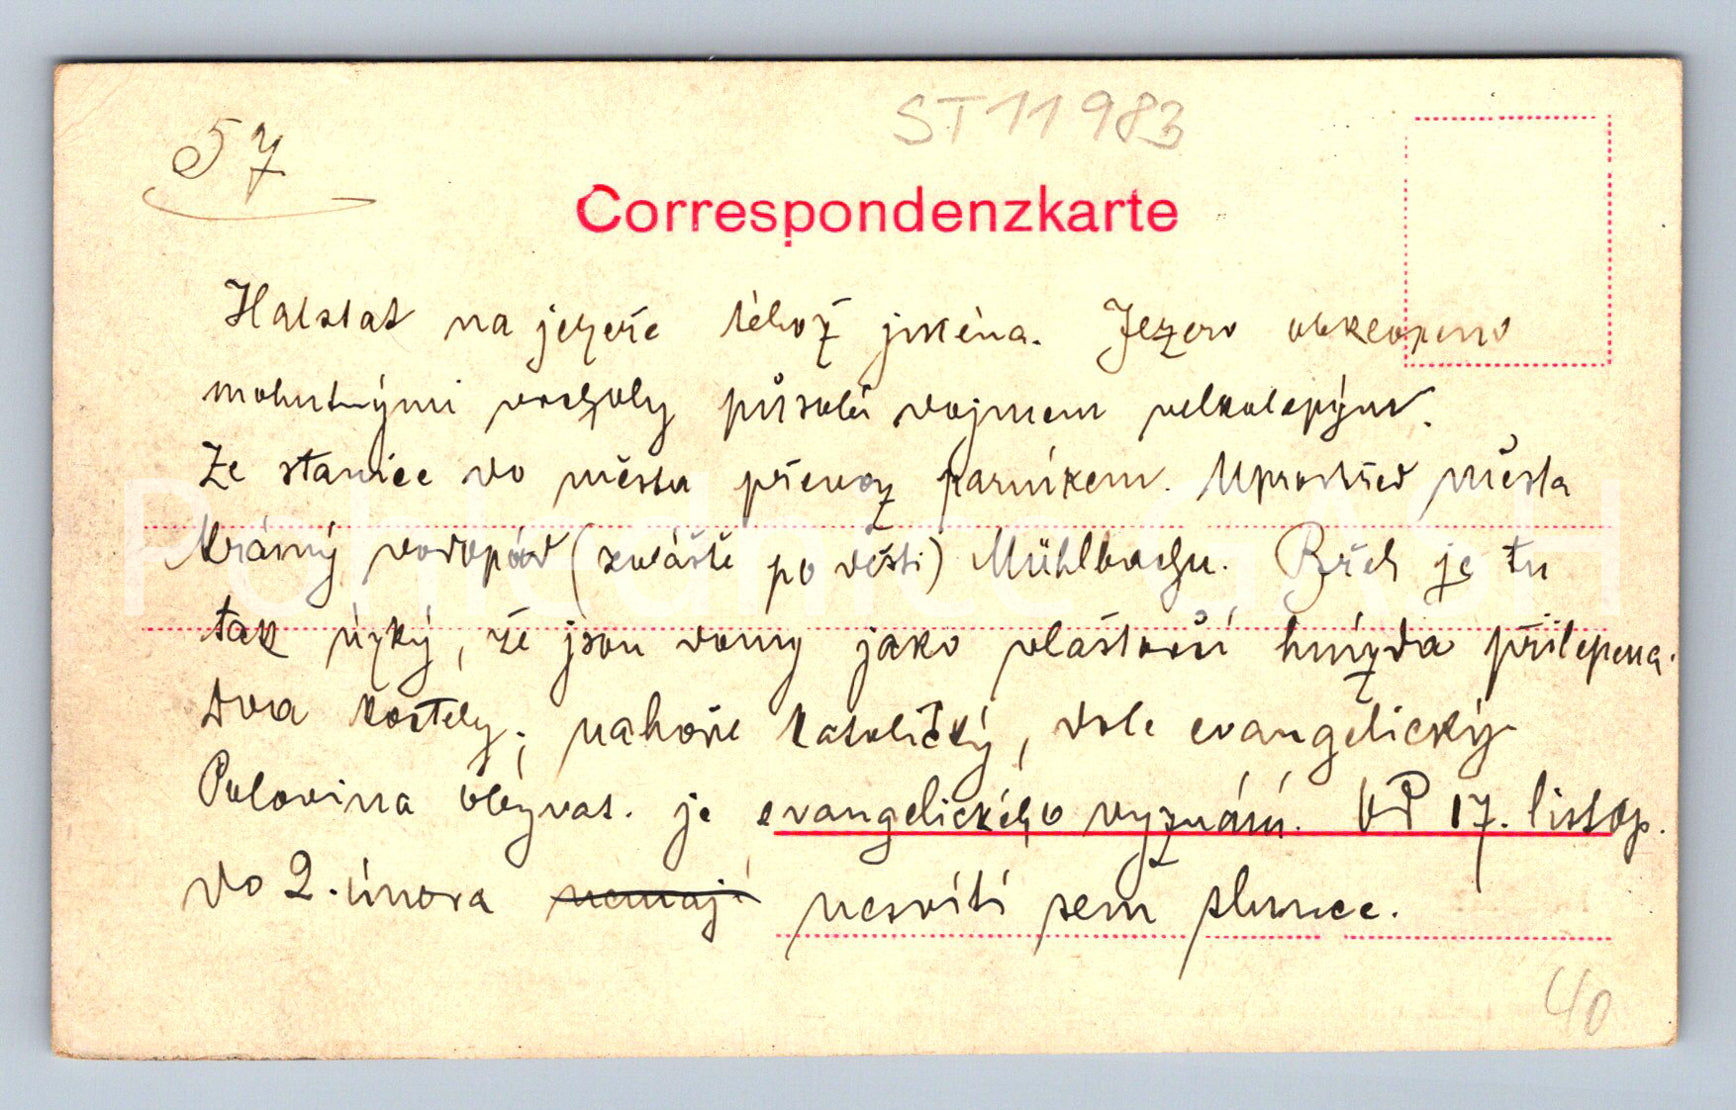 57
ST 11983
Correspondenzkarte
Halstat na jezeře téhož jména. Jezero obklopeno
mohutnými vrcholy působí dojmem velkolepým.
Ze stanice do města převoz parníkem. Uprostřed města
krásný vodopád (zvláště po dešti) Mühlbachu. Břeh je tu
tak úzký, že jsou domy jako vlaštovčí hnízda přilepena.
Dva kostely; nahoře katolický, dole evangelický
Polovina obyvat. je evangelického vyznání. Od 17. listop.
do 2. února nemají nesvítí sem slunce.
40